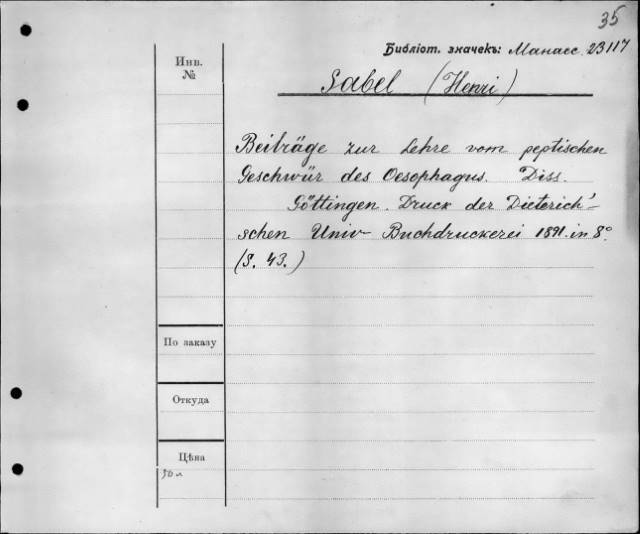 35
Библіот. значекъ: Манасс. 23117
Инв.
№
Sabel (Henri)
Beiträge zur Lehre vom peptischen
Geschwür des Oesophagus. Diss.
Göttingen. Druck der Dieterich'-
schen Univ-Buchdruckerei 1891. in 8°.
(S. 43.)
По заказу
Откуда
Цѣна